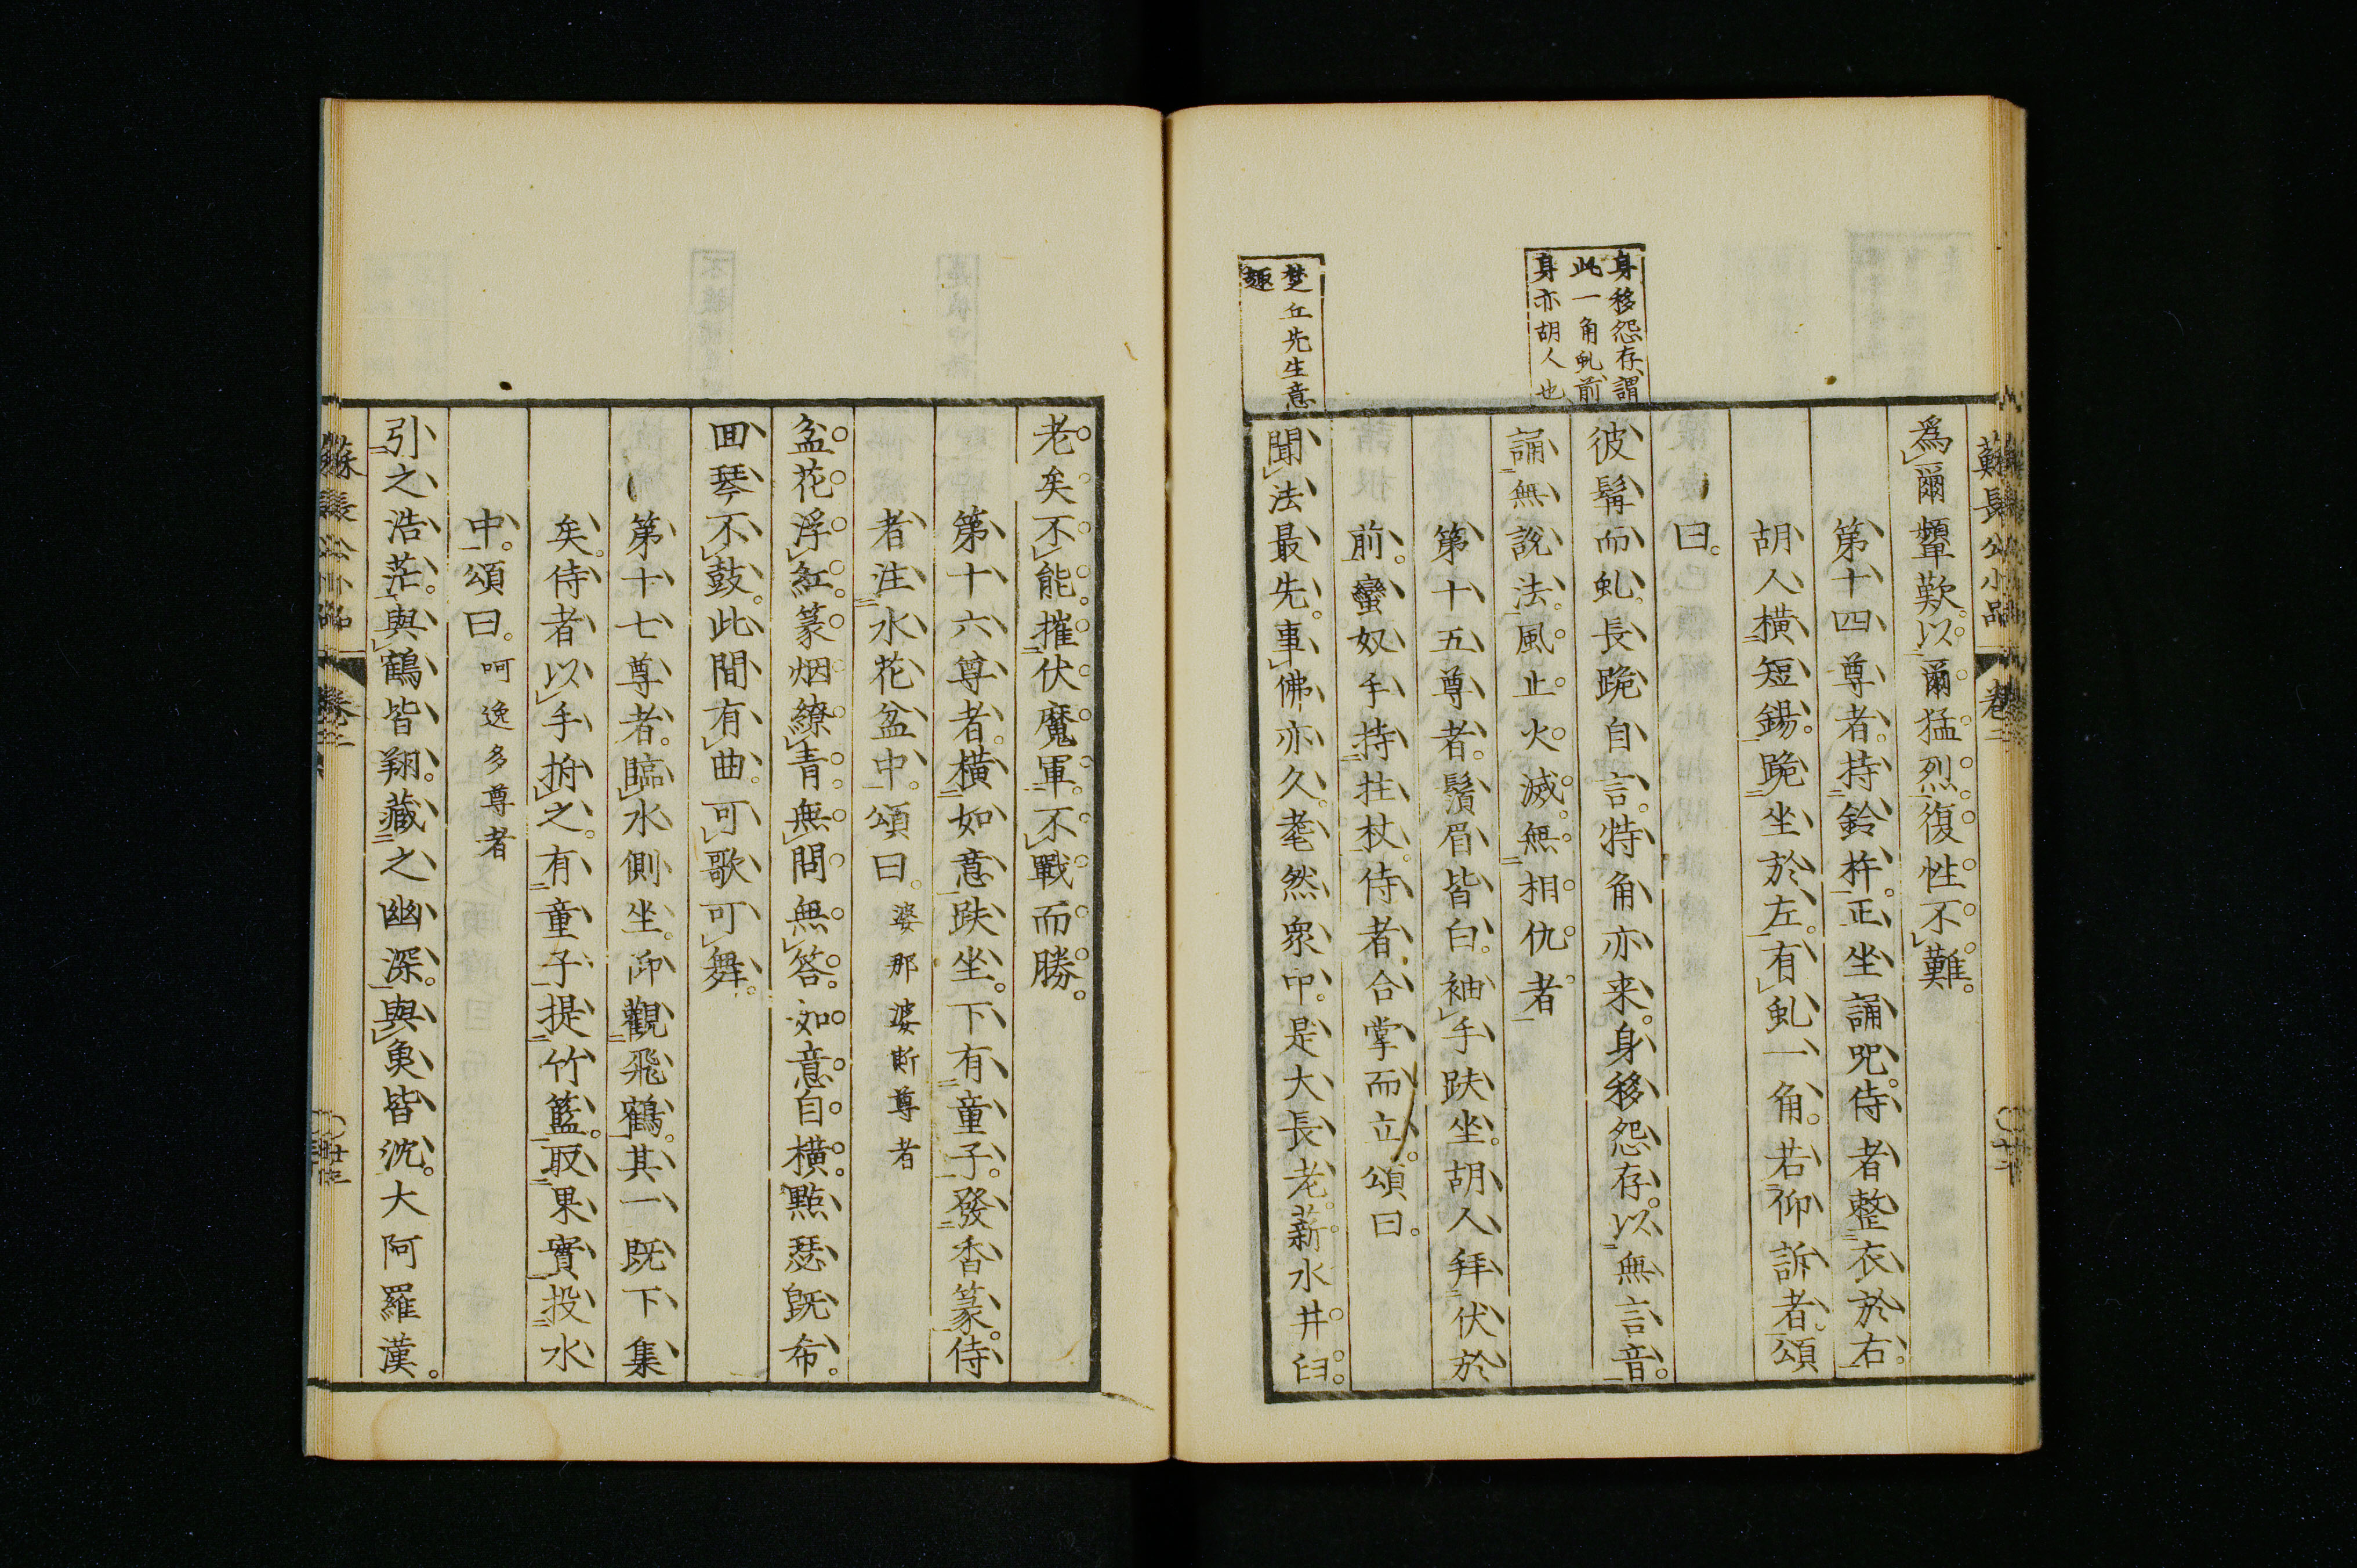 蘇長公小品 卷二
爲爾顰歎。以爾猛烈。復性不難。
第十四尊者。持鈴杵。正坐誦呪。侍者整衣於右。
胡人橫短錫。跪坐於左。有虬一角。若仰訴者。頌
曰。
彼髯而虬。長跪自言。特角亦来。身移怨存。以無言音。
誦無說法。風止火滅。無相仇者。
第十五尊者。鬚眉皆白。袖手趺坐。胡人拜伏於
前。蠻奴手持拄杖。侍者合掌而立。頌曰。
聞法最先。事佛亦久。耄然衆中。是大長老。薪水井臼。
身移怨存、謂
此一角虬、前
身亦胡人也
楚丘先生意
趣
老矣不能。摧伏魔軍。不戰而勝。
第十六尊者。橫如意趺坐。下有童子。發香篆。侍
者注水花盆中。頌曰。婆那婆斯尊者
盆花浮紅。篆烟繚青。無問無答。如意自橫。點瑟既希。
囬琴不鼓。此間有曲。可歌可舞。
第十七尊者。臨水側坐。仰觀飛鶴。其一既下集
矣。侍者以手拊之。有童子提竹籃。取果實投水
中。頌曰。呵逸多尊者
引之浩茫。與鶴皆翔。藏之幽深。與魚皆沈。大阿羅漢。
蘇長公小品 卷二